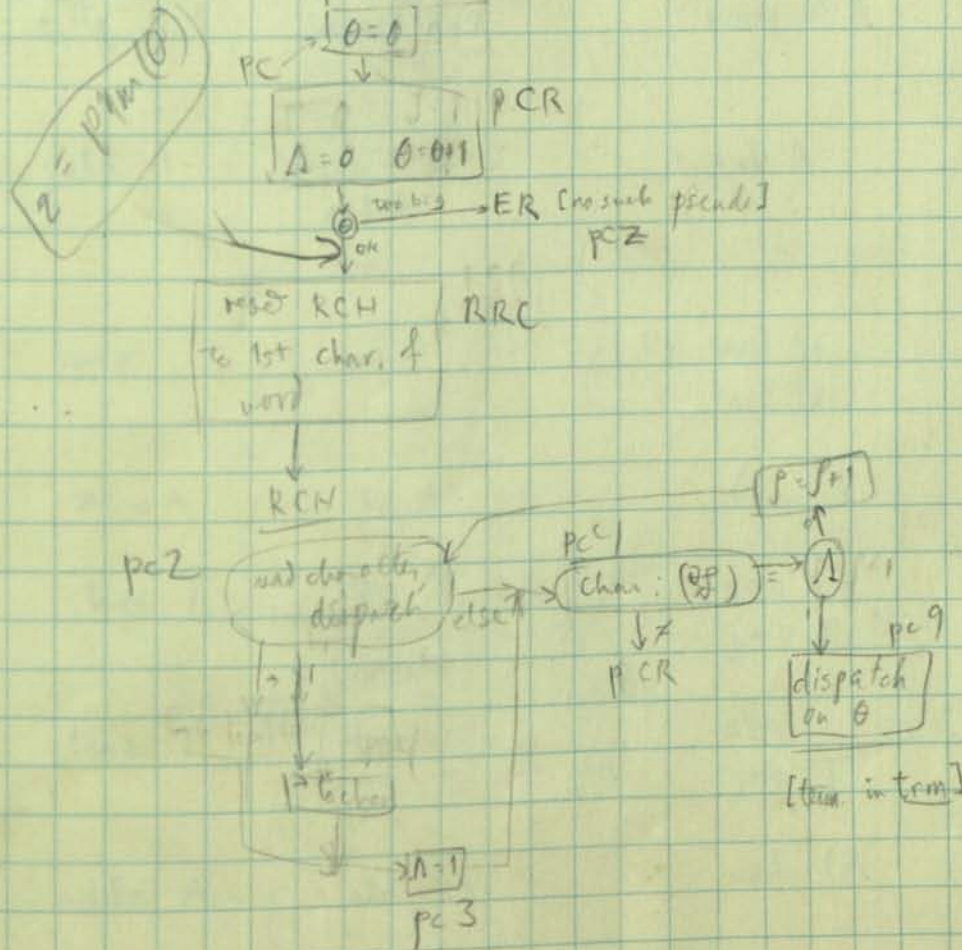 θ=0
PC
PCR
Λ=0 θ=θ+1
too big
ER [no such pseudo]
PCZ
θ
ok
reset RCH
to 1st char. of
word
RRC
RCH
pc2
read character,
dispatch
else
pc4
char :
=
Λ
≠
PCR
pc9
dispatch
on θ
[term in trm]
Λ=1
pc3